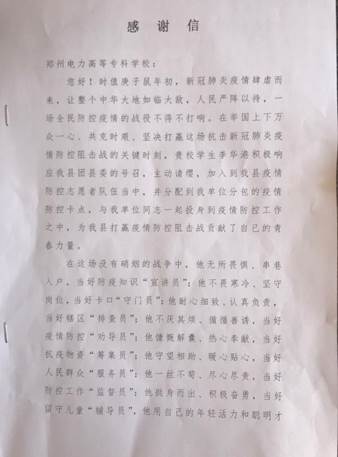 感 谢 信
郑州电力高等专科学校：
您好！时值庚子鼠年初，新冠肺炎疫情肆虐而
来，让整个中华大地如临大敌，人民严阵以待，一
场全民防控疫情的战役不得不打响。在举国上下万
众一心、共克时艰、坚决打赢这场抗击新冠肺炎疫
情防控阻击战的关键时刻，贵校学生李华港积极响
应我县团县委的号召，主动请缨，加入到我县疫情
防控志愿者队伍当中，并分配到我单位分包的疫情
防控卡点，与我单位同志一起投身到疫情防控工作
之中，为我县打赢疫情防控阻击战贡献了自己的青
春力量。
在这场没有硝烟的战争中，他无所畏惧、串巷
入户，当好防疫知识“宣讲员”；他不畏寒冷、坚守
岗位，当好卡口“守门员”；他耐心细致、认真负责，
当好辖区“排查员”；他不厌其烦、循循善诱，当好
疫情防控“劝导员”；他慷慨解囊、热心奉献，当好
抗疫物资“筹集员”；他守望相助、暖心贴心，当好
人民群众“服务员”；他一丝不苟、尽心尽责，当好
防控工作“监督员”；他挺身而出、积极奋勇，当好
留守儿童“辅导员”。他用自己的年轻活力和聪明才